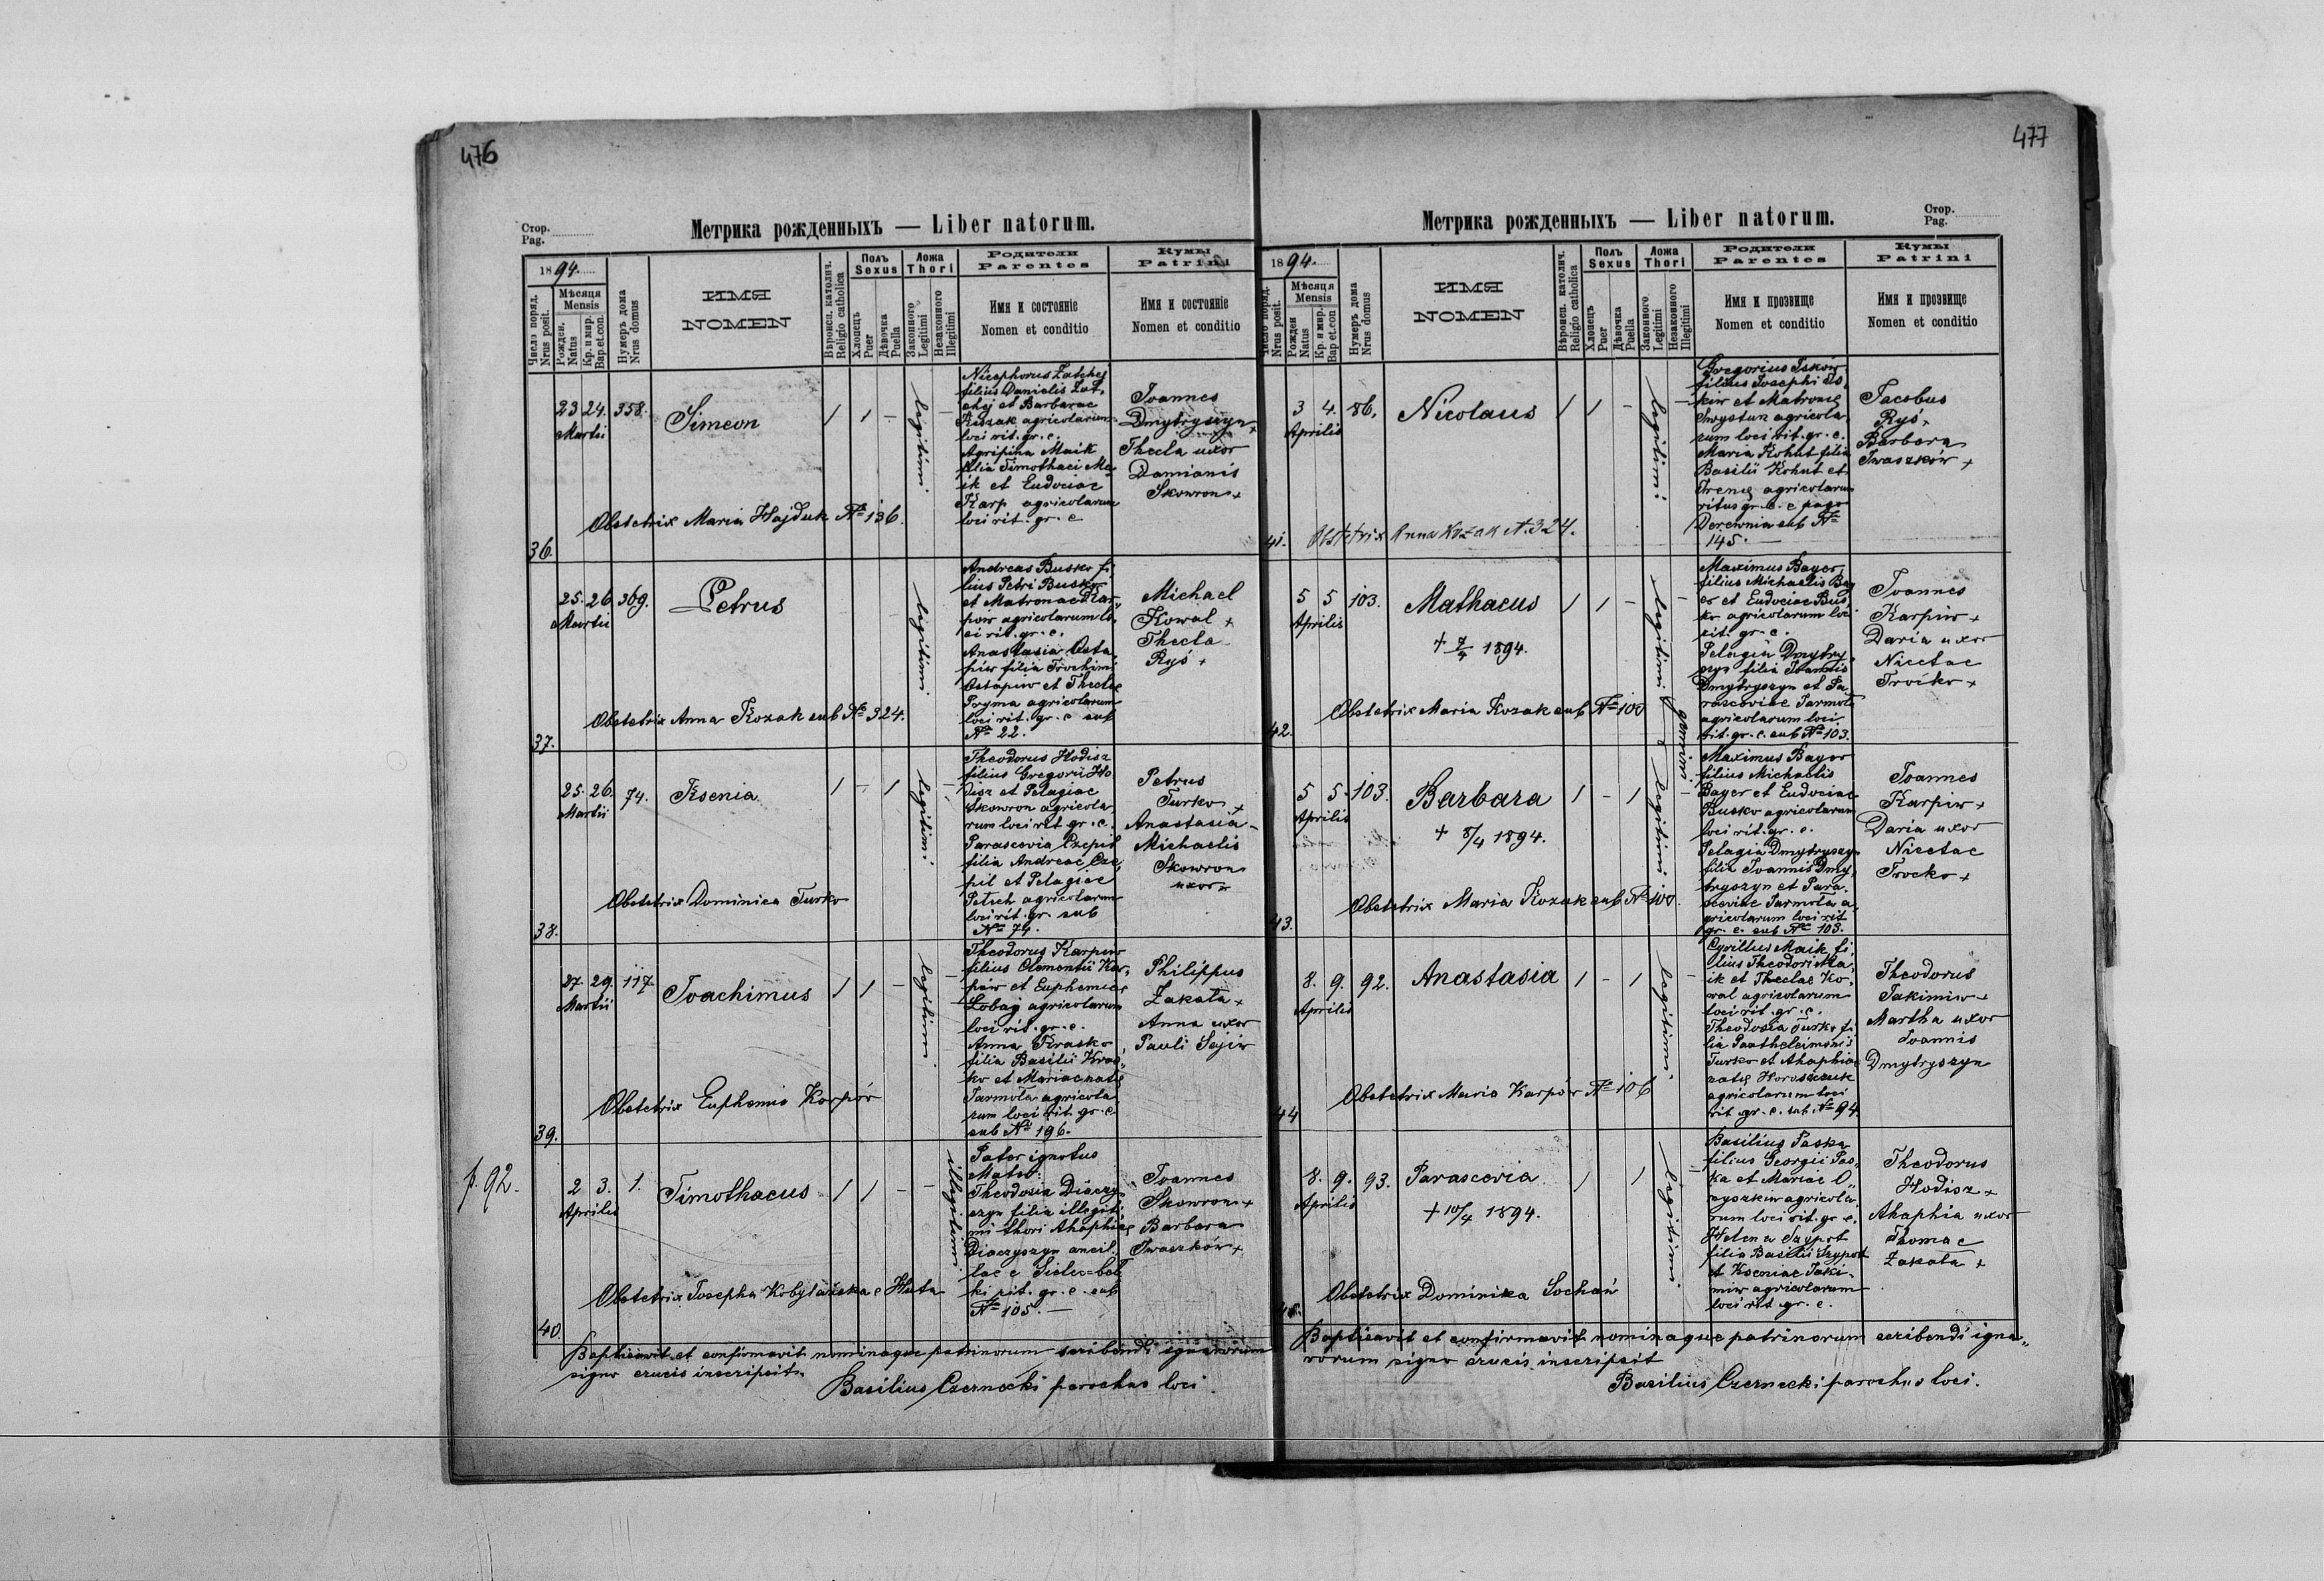 476
Стор.
Pag.
Метрика рожденныхъ — Liber natorum.
1894.
Число поряд.
Nrus posit.
Мѣсяця
Mensis
Рожден.
Natus
Кр. и мир.
Bap.et.con.
Нумеръ дома
Nrus domus
ИМЯ
NOMEN
Вѣроисп. католич.
Religio catholica
Полъ
Sexus
Хлопецъ
Puer
Дѣвочка
Puella
Ложа
Thori
Законного
Legitimi
Незаконного
Illegitimi
Родители
Parentes
Имя и состояніе
Nomen et conditio
Кумы
Patrini
Имя и состояніе
Nomen et conditio
36.
23 24. 358.
Martii
Simeon
1 1 - legitimi -
filius Danielis
et Barbarae
Kozak agricolarum
loci rit. gr. c.
Agripina Maik
filia Timothaei Ma-
ik et Eudociae
Karp agricolarum
loci rit. gr. c
Joannes
Dmytryszyn +
Thecla uxor
Damianis
Skowron +
Obstetrix Maria Hajduk № 136.
37.
25. 26 369.
Martii
Petrus
legitimi
Andreas Busko fi-
lius Petri Busko
et Matronae Kar-
pow agricolarum lo-
ci rit. gr. c.
Anastasia Osta-
piw filia Trochimi
Ostapiw et Theclae
Pryma agricolarum
loci rit. gr. c sub
№ 22.
Michael
Kowal +
Thecla
Ryś +
Obstetrix Anna Kozak sub № 324.
38.
25. 26. 74.
Martii
Ksenia
1 - 1 legitimi -
Theodorus Hodisz
filius Gregorii Ho
disz et Pelagiae
Skowron agricola
rum loci rit gr. c.
Parascevia Czepil
filia Andreae Cze-
pil et Pelagiae
Petsch agricolarum
loci rit. gr. sub
№ 74.
Petrus
Turko +
Anastasia
Michaelis
Skowron
uxor +
Obstetrix Dominica Turko
39.
27. 29. 117.
Martii
Joachimus
1 1 - legitimi -
Theodorus Karpiw
filius Clementii Kar-
piw et Euphemiae
Łobay agricolarum
loci rit. gr. c.
Anna Krasko
filia Basilii Kras-
ko et Mariae natae
Jarmoła agricola
rum loci rit. gr. c
sub № 196.
Philippus
Zakała +
Anna uxor
Pauli Sejiw
Obstetrix Euphemia Karpów
p. 92.
40.
2 3. 1.
Aprilis
Timothaeus
1 1 - - illegitimi
Pater ignotus
Mater:
Theodosia Diaczy-
szyn filia illegiti
mi thori Ahaphiae
Diaczyszyn ancil-
lae e Sielec-beł
ki rit. gr. c. sub
№ 105. —
Joannes
Skowron +
Barbara
Iwaszków +
Obstetrix Josepha Kobylańska e Huta
Baptisavit et confirmavit nominaque patrinorum scribendi ignarorum
signo crucis inscripsit.
Basilius Czernecki parochus loci.
477
Стор.
Pag.
Метрика рожденныхъ — Liber natorum.
1894.
Число поряд.
Nrus posit.
Мѣсяця
Mensis
Рожден
Natus
Кр. и мир.
Bap et.con
Нумеръ дома
Nrus domus
ИМЯ
NOMEN
Вѣроисп. католич.
Religio catholica
Полъ
Sexus
Хлопецъ
Puer
Дѣвочка
Puella
Ложа
Thori
Законного
Legitimi
Незаконного
Illegitimi
Родители
Parentes
Имя и прозвище
Nomen et conditio
Кумы
Patrini
Имя и прозвище
Nomen et conditio
41.
3 4. 86.
Aprilis
Nicolaus
1 1 - legitimi -
Gregorius Iśków
filius Josephi Iś
ków et Matronae
agricola-
rum loci rit. gr. c.
Maria Kohut filia
Basilii Kohut et
Irenę agricolarum
ritus gr. c. e pago
Derewnia sub №
145. —
Jacobus
Ryś +
Barbara
Iwaszków +
Obstetrix Anna Kozak № 324.
42.
5 5 103.
Aprilis
Mathaeus
+ 7/4 1894.
1 1 - legitimi -
gemini
Maximus Bayer
filius Michaelis Bay
er et Eudociae Bus-
ko agricolarum loci
rit. gr. c.
Pelagia Dmytry-
szyn filia Joannis
Dmytryszyn et Pa
rasceviae Jarmoła
agricolarum loci
rit. gr. c. sub № 103.
Joannes
Karpiw +
Daria uxor
Nicetae
Troćko +
Obstetrix Maria Kozak sub № 100
43.
5 5. 103.
Aprilis
Barbara
+ 8/4 1894.
1 - 1 legitimi -
Maximus Bayer
filius Michaelis
Bayer et Eudociae
Busko agricolarum
loci rit. gr. c.
Pelagia Dmytryszyn
filia Joannis Dmy-
tryszyn et Para-
sceviae Jarmoła a-
gricolarum loci rit
gr. c. sub № 103.
Joannes
Karpiw +
Daria uxor
Nicetae
Trocko +
Obstetrix Maria Kozak sub № 100.
44
8. 9. 92.
Aprilis
Anastasia
1 - 1 legitimi -
Cyrillus Maik fi-
lius Theodori Ma-
ik et Theclae Ko-
wal agricolarum
loci rit. gr. c.
Theodosia Turko fi
lia Pantheleimonis
Turko et Ahaphiae
natę Horoszczuk
agricolarum loci
rit. gr. c. sub № 94
Theodorus
Jakimiw +
Martha uxor
Joannis
Dmytryszyn
Obstetrix Maria Karpów № 106
45.
8. 9. 93.
Aprilis
Parascevia
+ 10/4 1894.
1 1 legitimi -
Basilius Paska
filius Georgii Pas-
ka et Mariae O-
nyszkiw agricola-
rum loci rit. gr c.
Helena Szypot
filia Basilii Szypot
et Kseniae Jaki-
miw agricolarum
loci rit. gr. c.
Theodorus
Hodisz +
Ahaphia uxor
Thomae
Zakała +
Obstetrix Dominika Sochań
Baptisavit et confirmavit nominaque patrinorum scribendi igna-
rorum signo crucis inscripsit
Basilius Czernecki parochus loci.